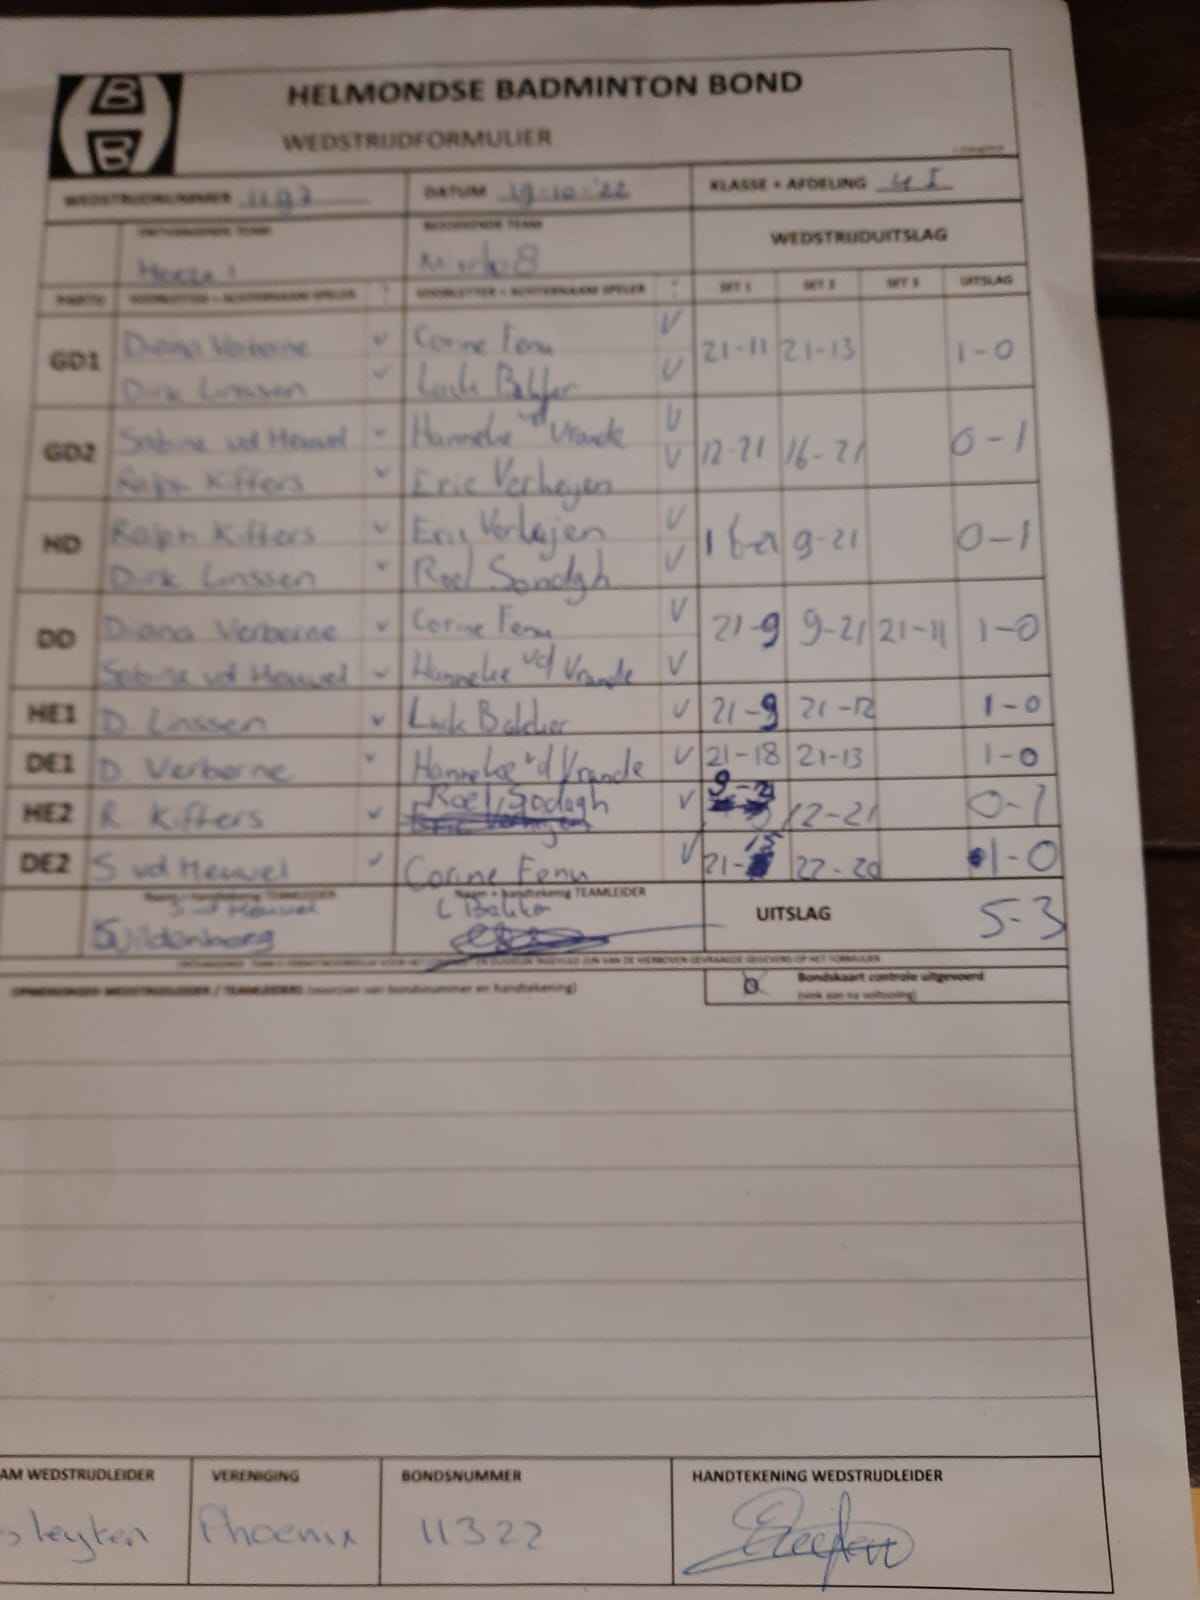 B
B
HELMONDSE BADMINTON BOND
WEDSTRIJDFORMULIER
WEDSTRIJDNUMMER
DATUM 19-10-'22
KLASSE + AFDELING 4 I
ONTVANGENDE TEAM
BEZOEKENDE TEAM
WEDSTRIJDUITSLAG
8
PARTIJ VOORLETTER + ACHTERNAAM SPELER VOORLETTER + ACHTERNAAM SPELER SET 1 SET 2 SET 3 UITSLAG
GD1 Diana Verberne v Corine Fenu V 21-11 21-13 1-0
Dirk Linssen v Luuk Bakker V
GD2 Sabine vd Heuvel v Hanneke vd Vrande V 12-21 16-21 0-1
Ralph Kiffers v Eric Verheijen V
HD Ralph Kiffers v Eric Verheijen V 9-21 0-1
Dirk Linssen v Roel V
DD Diana Verberne v Corine Fenu V 21-9 9-21 21-11 1-0
Sabine vd Heuvel v Hanneke vd Vrande V
HE1 D. Linssen v Luuk Bakker V 21-9 21-12 1-0
DE1 D. Verberne v Hanneke vd Vrande V 21-18 21-13 1-0
HE2 R Kiffers v Roel V 9-21 12-21 0-1
DE2 S vd Heuvel v Corine Fenu V 21-15 22-20 1-0
Naam + handtekening TEAMLEIDER Naam + handtekening TEAMLEIDER
S vd Heuvel L Bakker UITSLAG 5-3
OPMERKINGEN WEDSTRIJDLEIDER / TEAMLEIDERS (voorzien van bondsnummer en handtekening)
Bondskaart controle uitgevoerd
AM WEDSTRIJDLEIDER VERENIGING BONDSNUMMER HANDTEKENING WEDSTRIJDLEIDER
Phoenix 11322